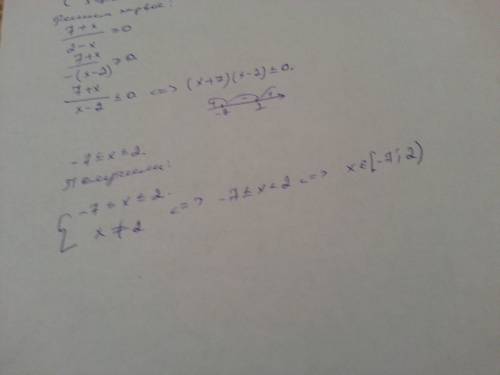 Решим первое:
7+x / 2-x ≥ 0
7+x / -(x-2) ≥ 0
7+x / x-2 ≤ 0 <=> (x+7)(x-2) ≤ 0.
+ - +
-7 2
-7 ≤ x ≤ 2.
Получили:
{ -7 ≤ x ≤ 2.
x ≠ 2 <=> -7 ≤ x < 2 <=> x ∈ [-7; 2)